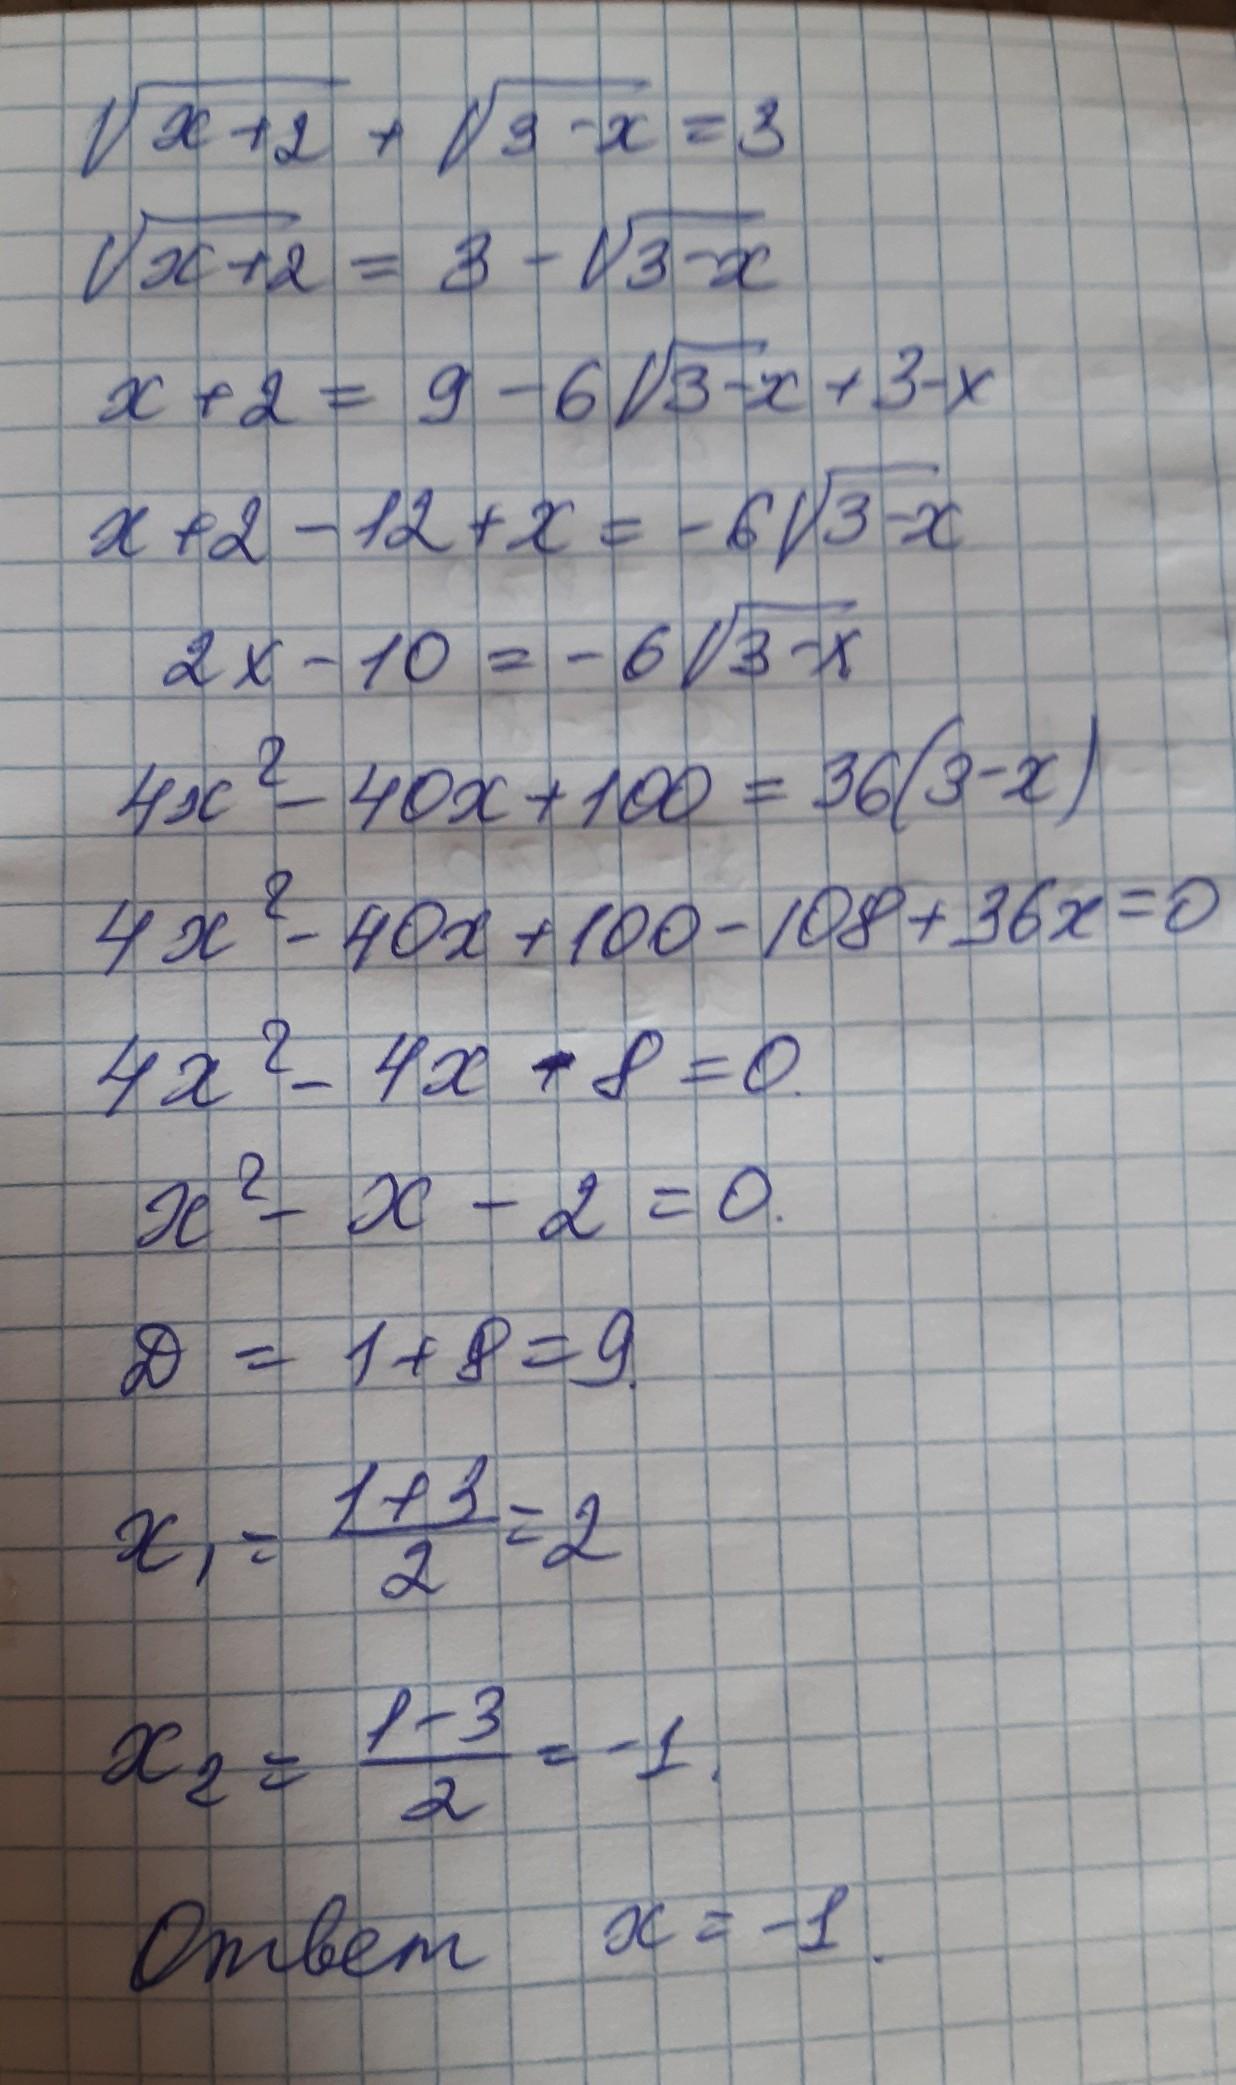 √(x+2) + √(3-x) = 3
√(x+2) = 3 - √(3-x)
x+2 = 9 - 6√(3-x) + 3-x
x+2-12+x = -6√(3-x)
2x-10 = -6√(3-x)
4x² - 40x + 100 = 36(3-x)
4x² - 40x + 100 - 108 + 36x = 0
4x² - 4x - 8 = 0.
x² - x - 2 = 0.
D = 1+8 = 9.
x₁ = (1+3)/2 = 2
x₂ = (1-3)/2 = -1.
Ответ x = -1.